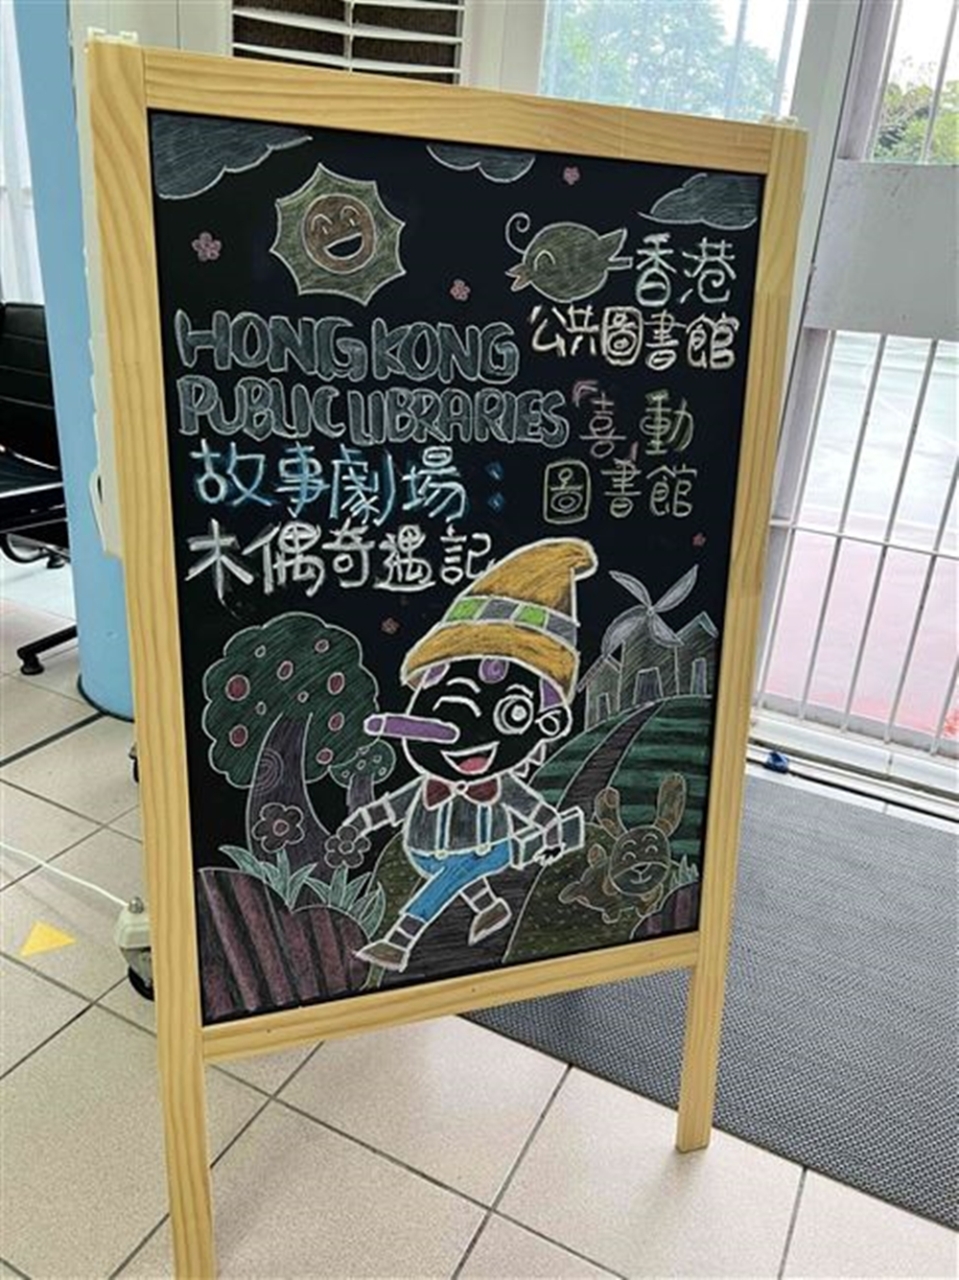 香港
公共圖書館
HONG KONG
PUBLIC LIBRARIES
「喜」動
圖書館
故事劇場：
木偶奇遇記